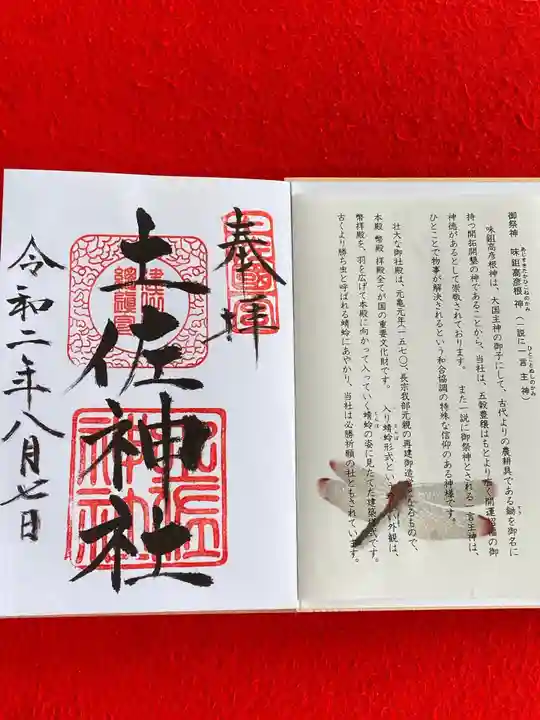 御祭神 味鉏高彦根神(一説に一言主神)
あじすきたかひこねのかみ
ひとことぬしのかみ
味鉏高彦根神は、大国主神の御子にして、古代よりの農耕具である鋤を御名に
すき
持つ開拓開墾の神であることから、当社は、五穀豊穣はもとより 開運招福の御
神徳があるとして崇敬されております。 また一説に御祭神とされる一言主神は、
ひとことで物事が解決されるという和合協調の特殊な信仰のある神様です。
壮大な御社殿は、元亀元年(一五七〇)、長宗我部元親の再建御造 なるもので、
本殿 幣殿 拝殿全てが国の重要文化財です。 入り蜻蛉形式とい 外観は、
とんぼ
幣拝殿を、羽を広げて本殿に向かって入っていく蜻蛉の姿に見たてた建築様式です。
とんぼ
古くより勝ち虫と呼ばれる蜻蛉にあやかり、当社は必勝祈願の社ともされています。
奉拝
土佐神社
令和二年八月七日